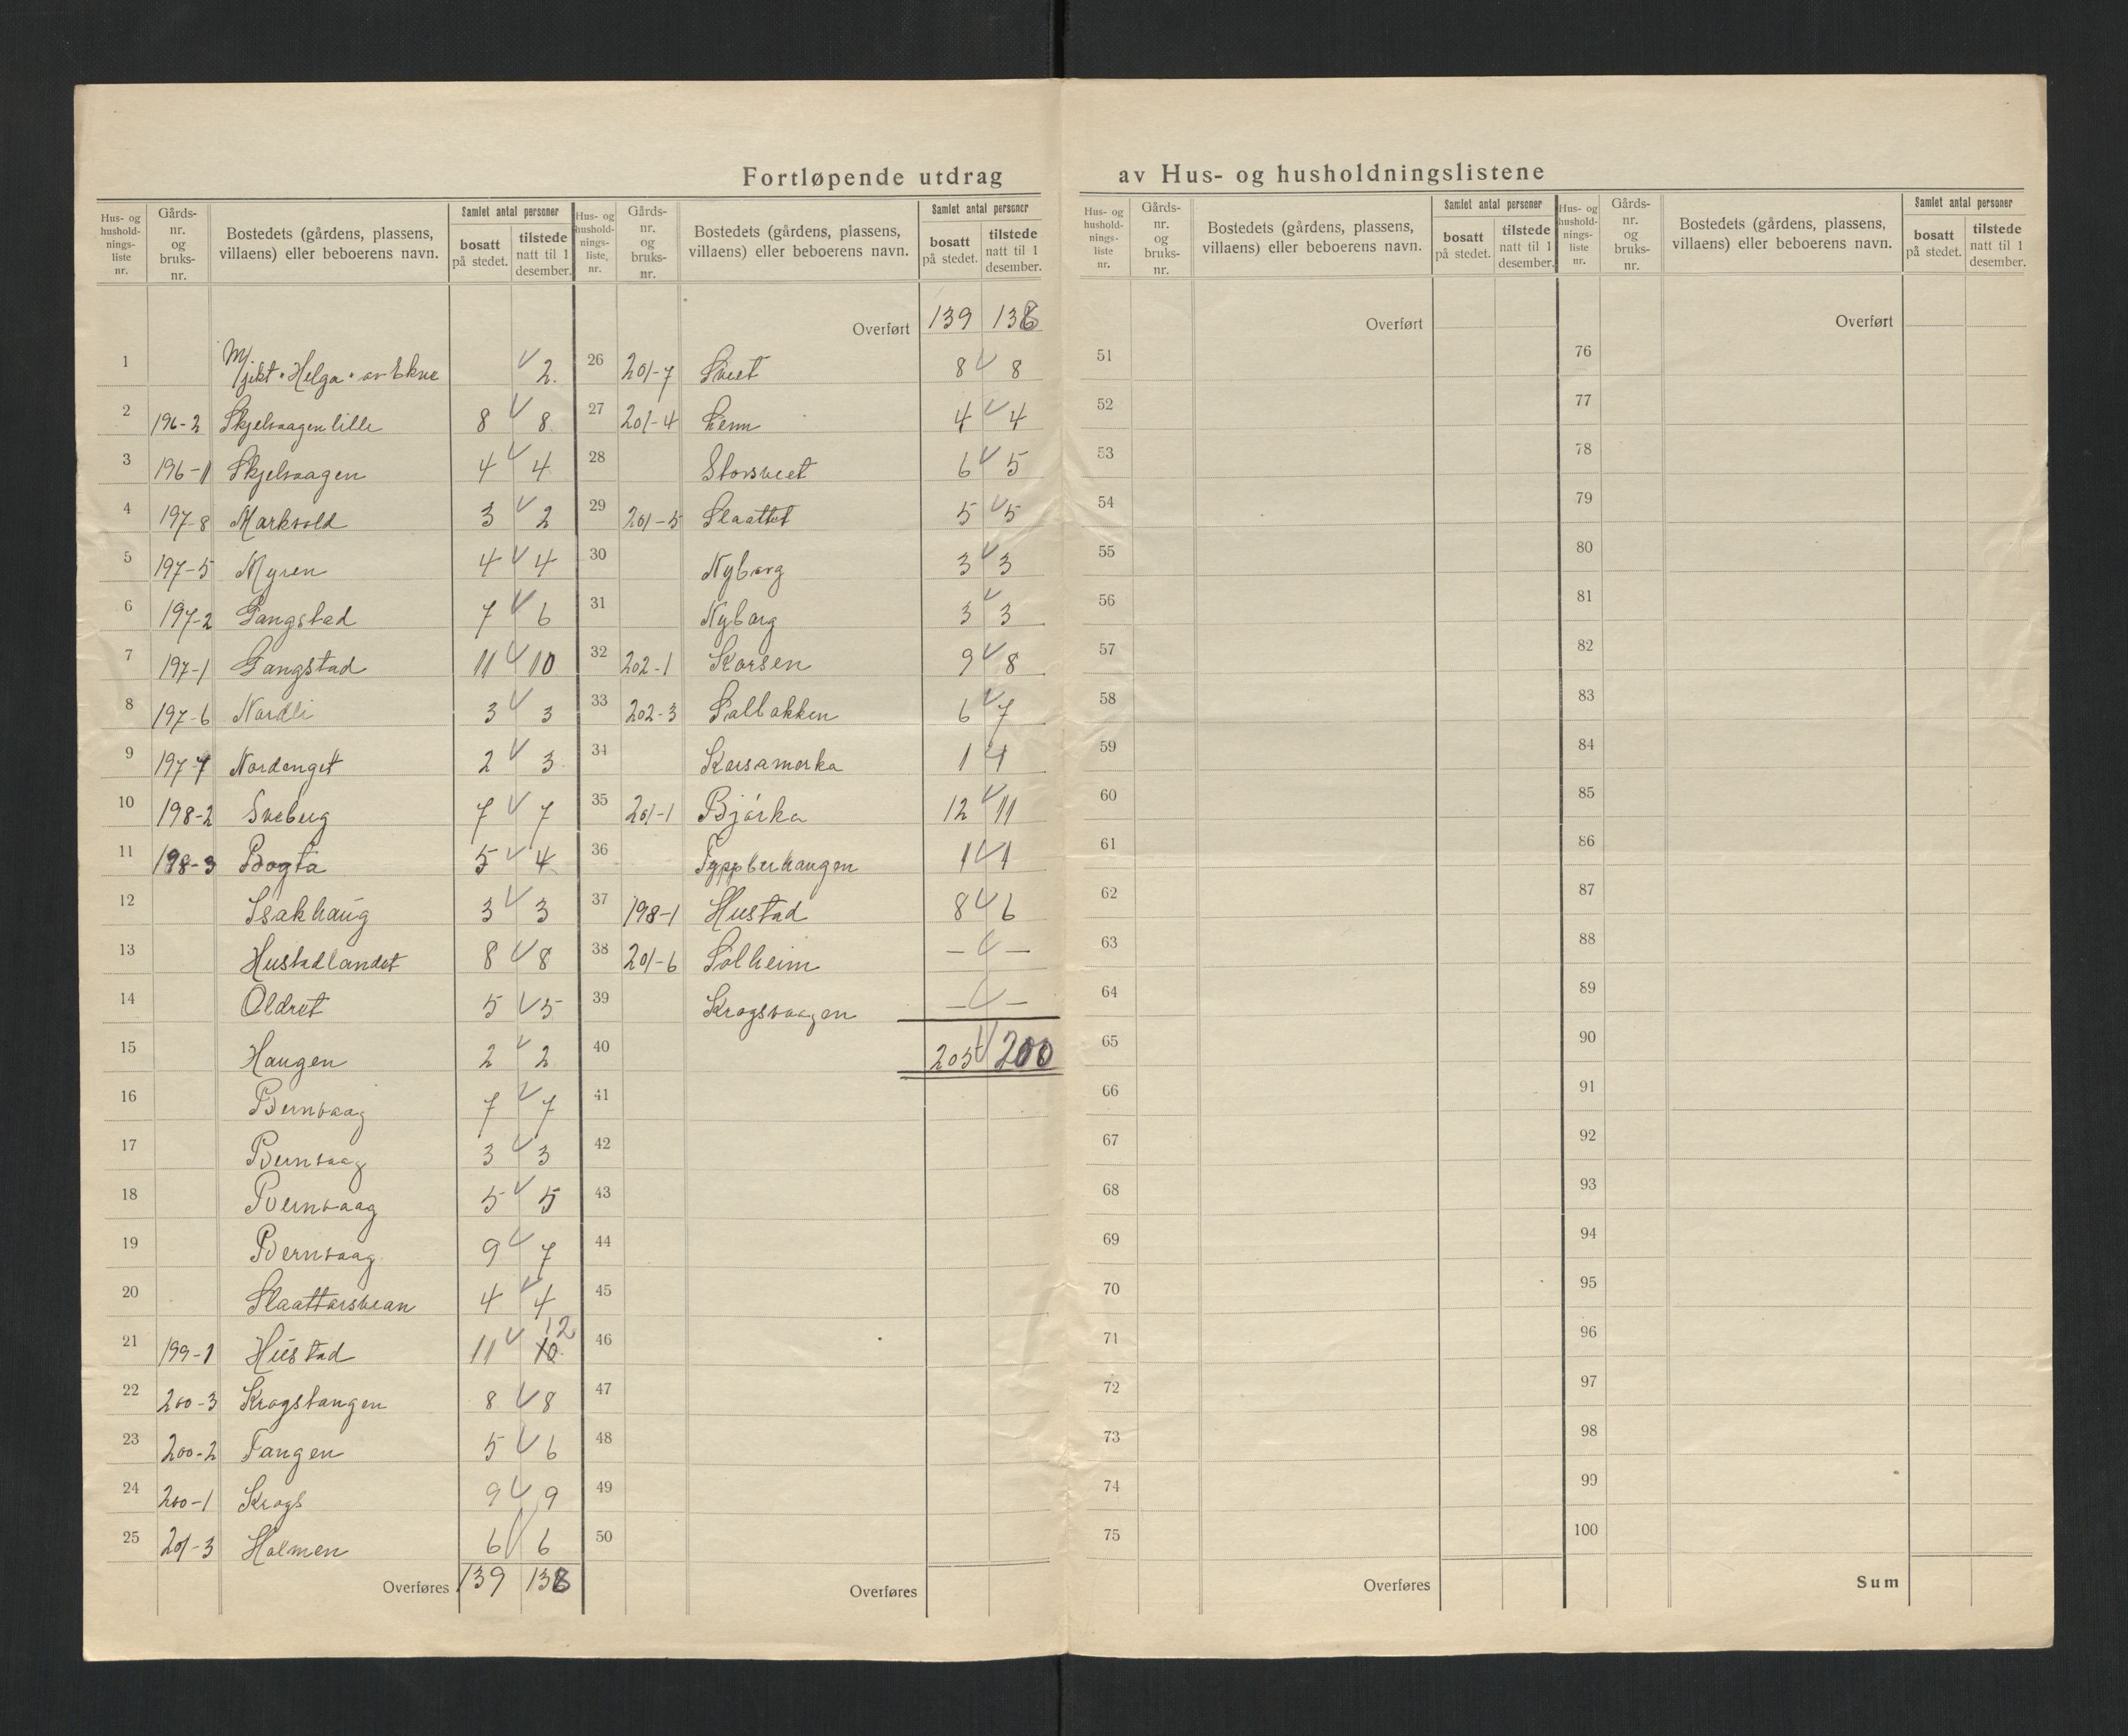 Fortløpende utdrag av Hus- og husholdningslistene
Hus- og hushold- nings- liste nr.
Gårds- nr. og bruks- nr.
Bostedets (gårdens, plassens, villaens) eller beboerens navn.
Samlet antal personer
bosatt på stedet.
tilstede natt til 1 desember.
1 M/jekt "Helga" av Ekne 2.
2 196-2 Skjelvaagen lille 8 8
3 196-1 Skjelvaagen 4 4
4 197-8 Markvold 3 2
5 197-5 Myren 4 4
6 197-2 Gangstad 7 6
7 197-1 Gangstad 11 10
8 197-6 Nordli 3 3
9 197-7 Nordenget 2 3
10 198-2 Sveberg 7 7
11 198-3 Bogta 5 4
12 Isakhaug 3 3
13 Hustadlandet 8 8
14 Oldret 5 5
15 Haugen 2 2
16 Bernvaag 7 7
17 Bernvaag 3 3
18 Bernvaag 5 5
19 Bernvaag 9 7
20 Slaattarsvean 4 4
21 199-1 Hustad 11 10 12
22 200-3 Krogstangen 8 8
23 200-2 Tangen 5 6
24 200-1 Krogs 9 9
25 201-3 Holmen 6 6
Overføres 139 138
Hus- og hushold- nings- liste, nr.
Gårds- nr. og bruks- nr.
Bostedets (gårdens, plassens, villaens) eller beboerens navn.
Samlet antal personer
bosatt på stedet.
tilstede natt til 1 desember.
Overført 139 138
26 201-7 Sveet 8 8
27 201-4 4 4
28 Storsveet 6 5
29 201-5 Slaattet 5 5
30 Nyborg 3 3
31 Nyborg 3 3
32 202-1 Korsen 9 8
33 202-3 Solbakken 6 7
34 Korsamorka 1 1
35 201-1 Bjørka 12 11
36 1 1
37 198-1 Hustad 8 6
38 201-6 Solheim — —
39 Krogsvaagen — —
40 205 200
41
42
43
44
45
46
47
48
49
50
Overføres
Hus- og hushold- nings- liste nr.
Gårds- nr. og bruks- nr.
Bostedets (gårdens, plassens, villaens) eller beboerens navn.
Samlet antal personer
bosatt på stedet.
tilstede natt til 1 desember.
Overført
51
52
53
54
55
56
57
58
59
60
61
62
63
64
65
66
67
68
69
70
71
72
73
74
75
Overføres
Hus- og hushold- nings- liste nr.
Gårds- nr. og bruks- nr.
Bostedets (gårdens, plassens, villaens) eller beboerens navn.
Samlet antal personer
bosatt på stedet.
tilstede natt til 1 desember.
Overført
76
77
78
79
80
81
82
83
84
85
86
87
88
89
90
91
92
93
94
95
96
97
98
99
100
Sum